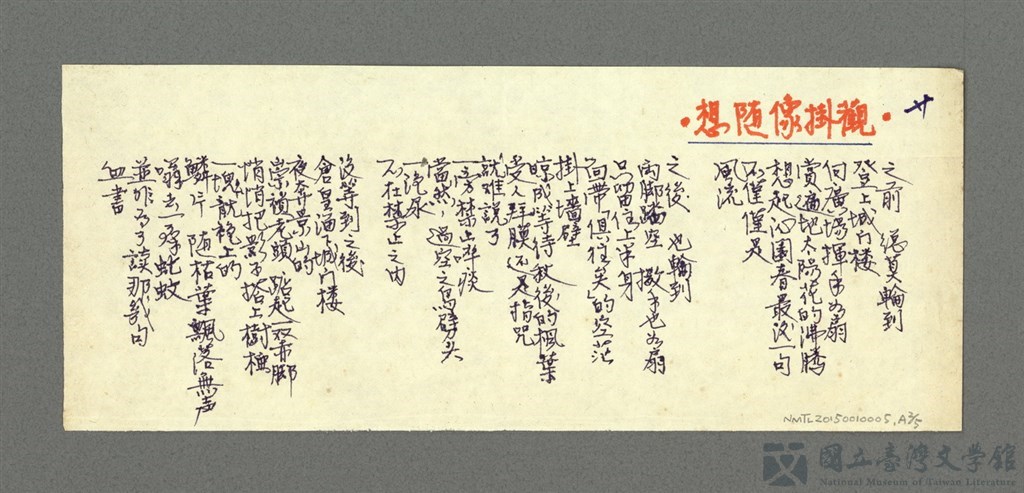 廿
·觀掛像隨想·
之前　總算輪到
登上城門樓
向廣場揮手如扇
賞遍地太陽花的沸騰
想起沁園春最後一句
不僅僅是
風流
之後　也輪到
兩腳踏空　撒手也如扇
只留住上半身
面帶俱往矣的空茫
掛上牆壁
晾成等待秋後的楓葉
受人群膜還是指咒
就難說了
一旁禁止吐痰
當然，過空之鳥劈头
一泡屎
不在禁止之内
沒等到之後
倉皇溜下城門楼
夜奔景山的
崇禎老頭　跳起一双赤脚
悄悄把影子搭上樹椏
一塊龍袍上的
鱗片　随枯葉飄落無声
嚇走一群虻蚊
並非为了談那幾句
血書
NMTL20150010005,A3/5
國立臺灣文學館
National Museum of Taiwan Literature